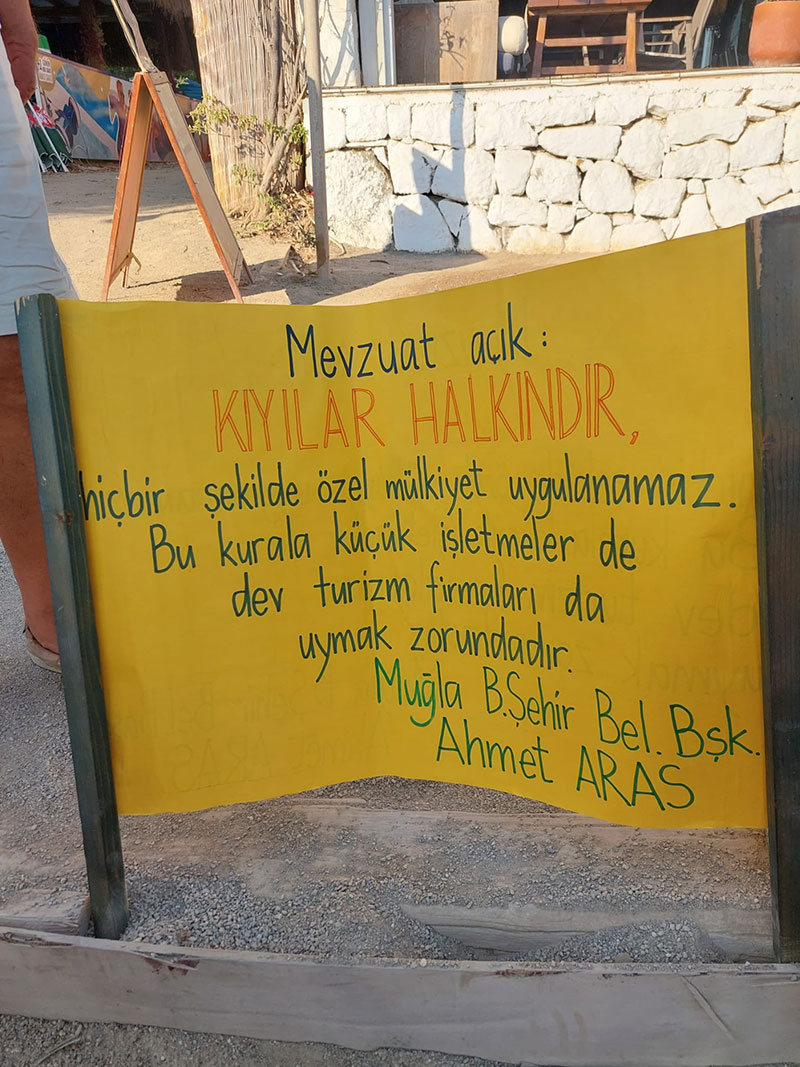 Mevzuat açık:
KIYILAR HALKINDIR,
hiçbir şekilde özel mülkiyet uygulanamaz.
Bu kurala küçük işletmeler de
dev turizm firmaları da
uymak zorundadır.
Muğla B.Şehir Bel. Bşk.
Ahmet ARAS